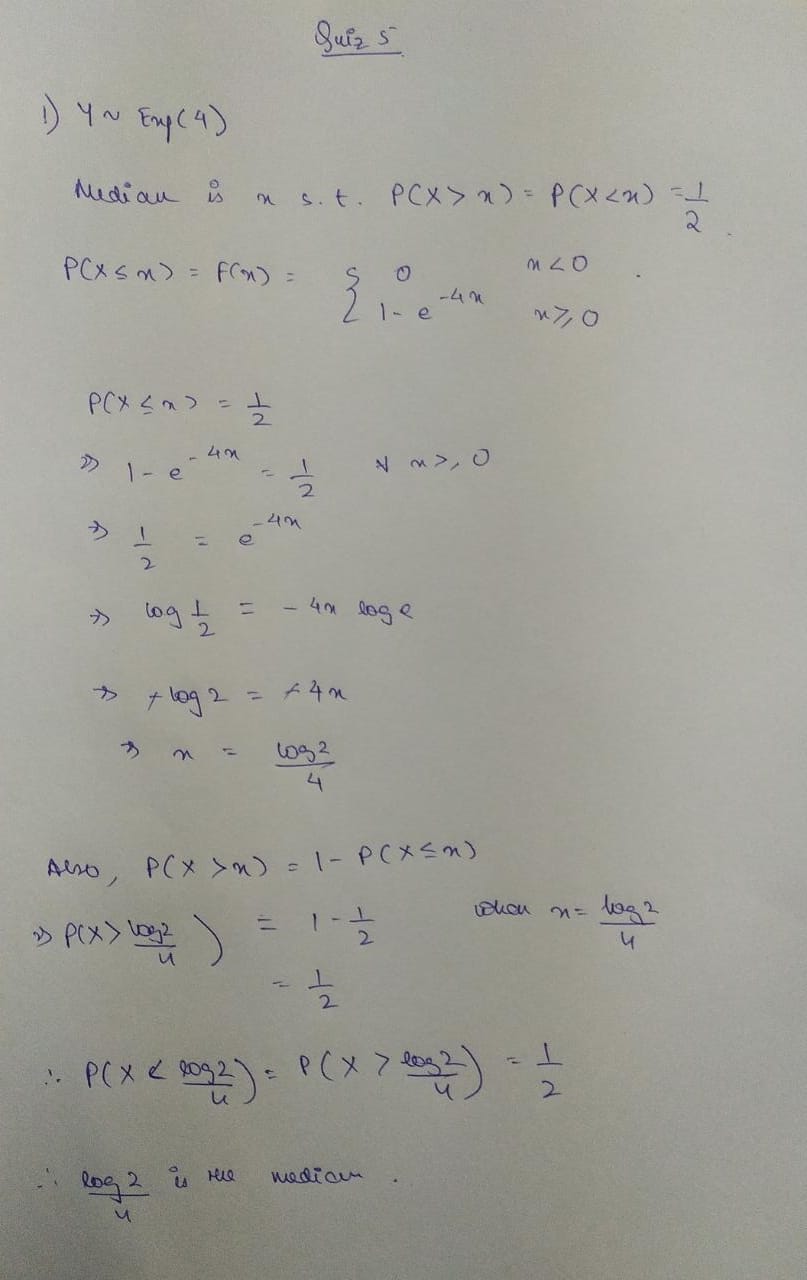 Quiz 5
1) Y ~ Exp(4)
Median is x s.t. P(X > x) = P(X < x) = 1/2.
P(X ≤ x) = F(x) = { 0 x < 0
1 - e^{-4x} x ≥ 0
P(X ≤ x) = 1/2
⇒ 1 - e^{-4x} = 1/2 ∀ x ≥ 0
⇒ 1/2 = e^{-4x}
⇒ log 1/2 = - 4x log e
⇒ + log 2 = + 4x
⇒ x = log 2 / 4
Also, P(X > x) = 1 - P(X ≤ x)
⇒ P(X > log 2 / 4) = 1 - 1/2 when x = log 2 / 4
= 1/2
∴ P(X < log 2 / 4) = P(X > log 2 / 4) = 1/2
∴ log 2 / 4 is the median.